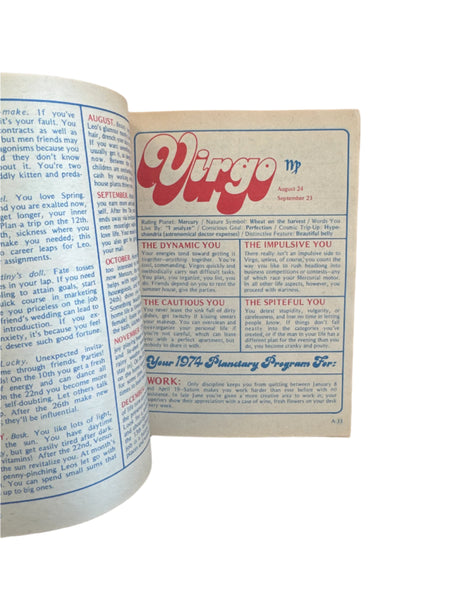 make. If you've
it's your fault. You
contracts as well as
but men friends may
agonisms because you
d they don't know
out it. You're two
dly kitten and preda-
el. You love Spring,
nd you are exalted now,
get longer, your inner
Plan a trip on the 12th
th, sickness where you
make you needed; this
o career leaps for Leo.
assignments.
tiny's doll. Fate tosses
ces in your lap. If you need
ing to attain goals, start
uick course in marketing
e you priceless on the job
friend's wedding can lead to
introduction. If you ex-
nxiety, it's because you feel
deserve such good fortune!
Lucky. Unexpected invita-
me through friends. Parties!
ds! On the 10th you get fresh
f energy and can dance all
n the 22nd you become more
self-doubting. Let others talk
t. After the 26th make new
they'll be influential.
Y. Bask. You like lots of light,
the sun. You have daytime
y, but get easily tired after dark.
vitamins! After the 22nd, Venus
the sun revitalize you. At month's
penny-pinching Leos let go with
You can spend small sums that
up to big ones.
AUGUST.
Leo's glamour
hair, dress
If you want
usually get it
now. Between
children are
cash by working
house plants
SEPTEMBER.
OCTOBER.
NOVEMBER
DECEM
Virgo ♍
August 24
September 23
Ruling Planet: Mercury / Nature Symbol: Wheat on the harvest / Words You
Live By: "I analyze" / Conscious Goal: Perfection / Cosmic Trip-Up: Hypo-
chondria (astronomical doctor expenses) / Distinctive Feature: Beautiful belly
THE DYNAMIC YOU
Your energies tend toward getting it
together—anything together. You're
cool, commanding. Virgos quickly and
methodically carry out difficult tasks.
You plan, you organize, you list, you
do. Friends depend on you to rent the
summer house, give the parties.
THE IMPULSIVE YOU
There really isn't an impulsive side to
Virgo, unless, of course, you count the
way you like to rush headlong into
business competitions or contests—any
of which may reap your material gain.
In all other life aspects, however, you
proceed with wariness.
THE CAUTIOUS YOU
You never leave the sink full of dirty
dishes, get twitchy if kissing smears
your makeup. You can overclean and
overorganize your personal life if
you're not careful, which can leave
you with a perfect apartment, but
nobody to share it with.
THE SPITEFUL YOU
You detest stupidity, vulgarity, or
carelessness, and lose no time in letting
people know. If things don't fall
easily into the categories you've
created, or if the man in your life has a
different plan for the evening than you
do, you become cranky and pouty.
Your 1974 Planetary Program For:
WORK: Only discipline keeps you from quitting between January 8
and April 19—Saturn makes you work harder than ever before with no
assistance. In late June you're given a more creative area to work in; your
superiors show their appreciation with a case of wine, fresh flowers on your desk
A-33